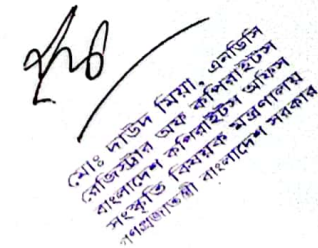 মোঃ দাউদ মিয়া, এনডিসি
রেজিস্ট্রার অফ কপিরাইটস
বাংলাদেশ কপিরাইটস অফিস
সংস্কৃতি বিষয়ক মন্ত্রণালয়
গণপ্রজাতন্ত্রী বাংলাদেশ সরকার